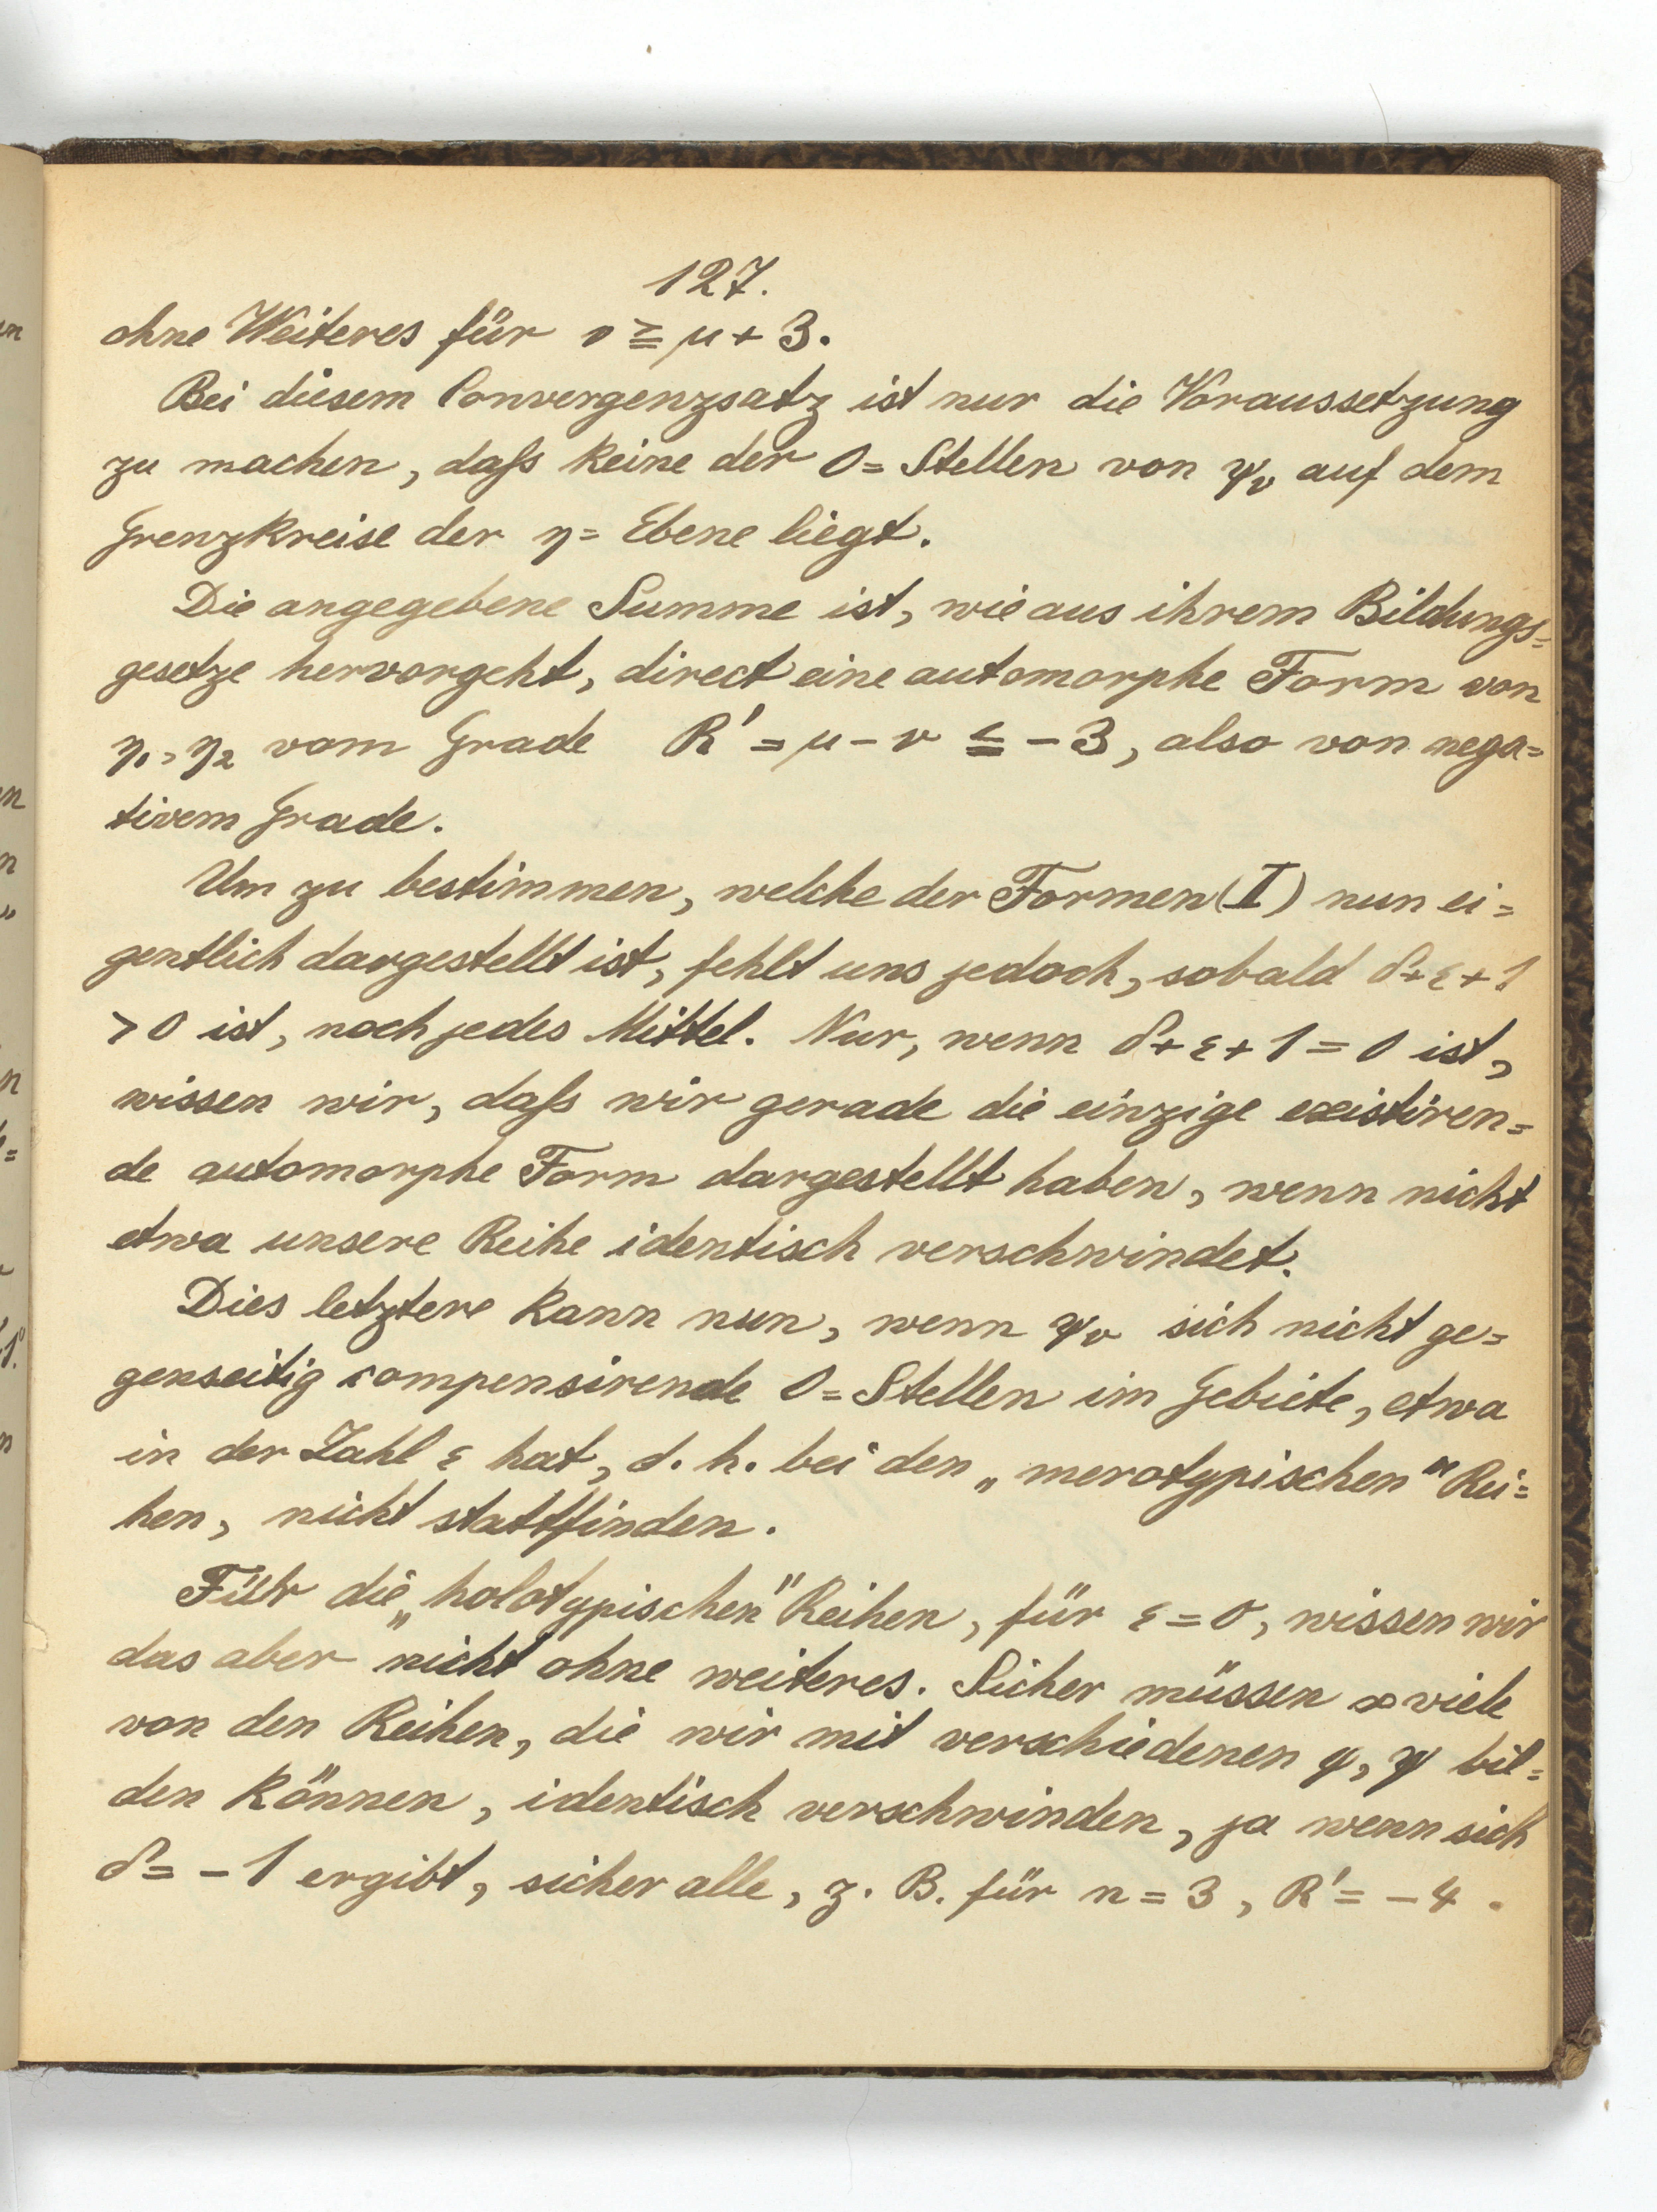 127.
ohne Weiteres für ν ≧ μ + 3.
Bei diesem Convergenzsatz ist nur die Voraussetzung
zu machen, daſs keine der 0=Stellen von ψν auf dem
Grenzkreise der η=Ebene liegt.
Die angegebene Summe ist, wie aus ihrem Bildungs=
gesetze hervorgeht, direct eine automorphe Form von
η₁, η₂ vom Grade R' = μ - ν ≦ - 3, also von nega=
tivem Grade.
Um zu bestimmen, welche der Formen (I) nun ei=
gentlich dargestellt ist, fehlt uns jedoch, sobald δ+ε+1
> 0 ist, noch jedes Mittel. Nur, wenn δ+ε+1 = 0 ist,
wissen wir, daſs wir gerade die einzige existiren=
de automorphe Form dargestellt haben, wenn nicht
etwa unsere Reihe identisch verschwindet.
Dies letztere kann nun, wenn ψν sich nicht ge=
genseitig compensirende 0=Stellen im Gebiete, etwa
in der Zahl ε hat, d. h. bei den „merotypischen" Rei=
hen, nicht stattfinden.
Für die „holotypischen" Reihen, für ε = 0, wissen wir
das aber nicht ohne weiteres. Sicher müssen ∞ viele
von den Reihen, die wir mit verschiedenen φ, ψ bil=
den können, identisch verschwinden, ja wenn sich
δ = - 1 ergibt, sicher alle, z. B. für n = 3, R' = - 4.